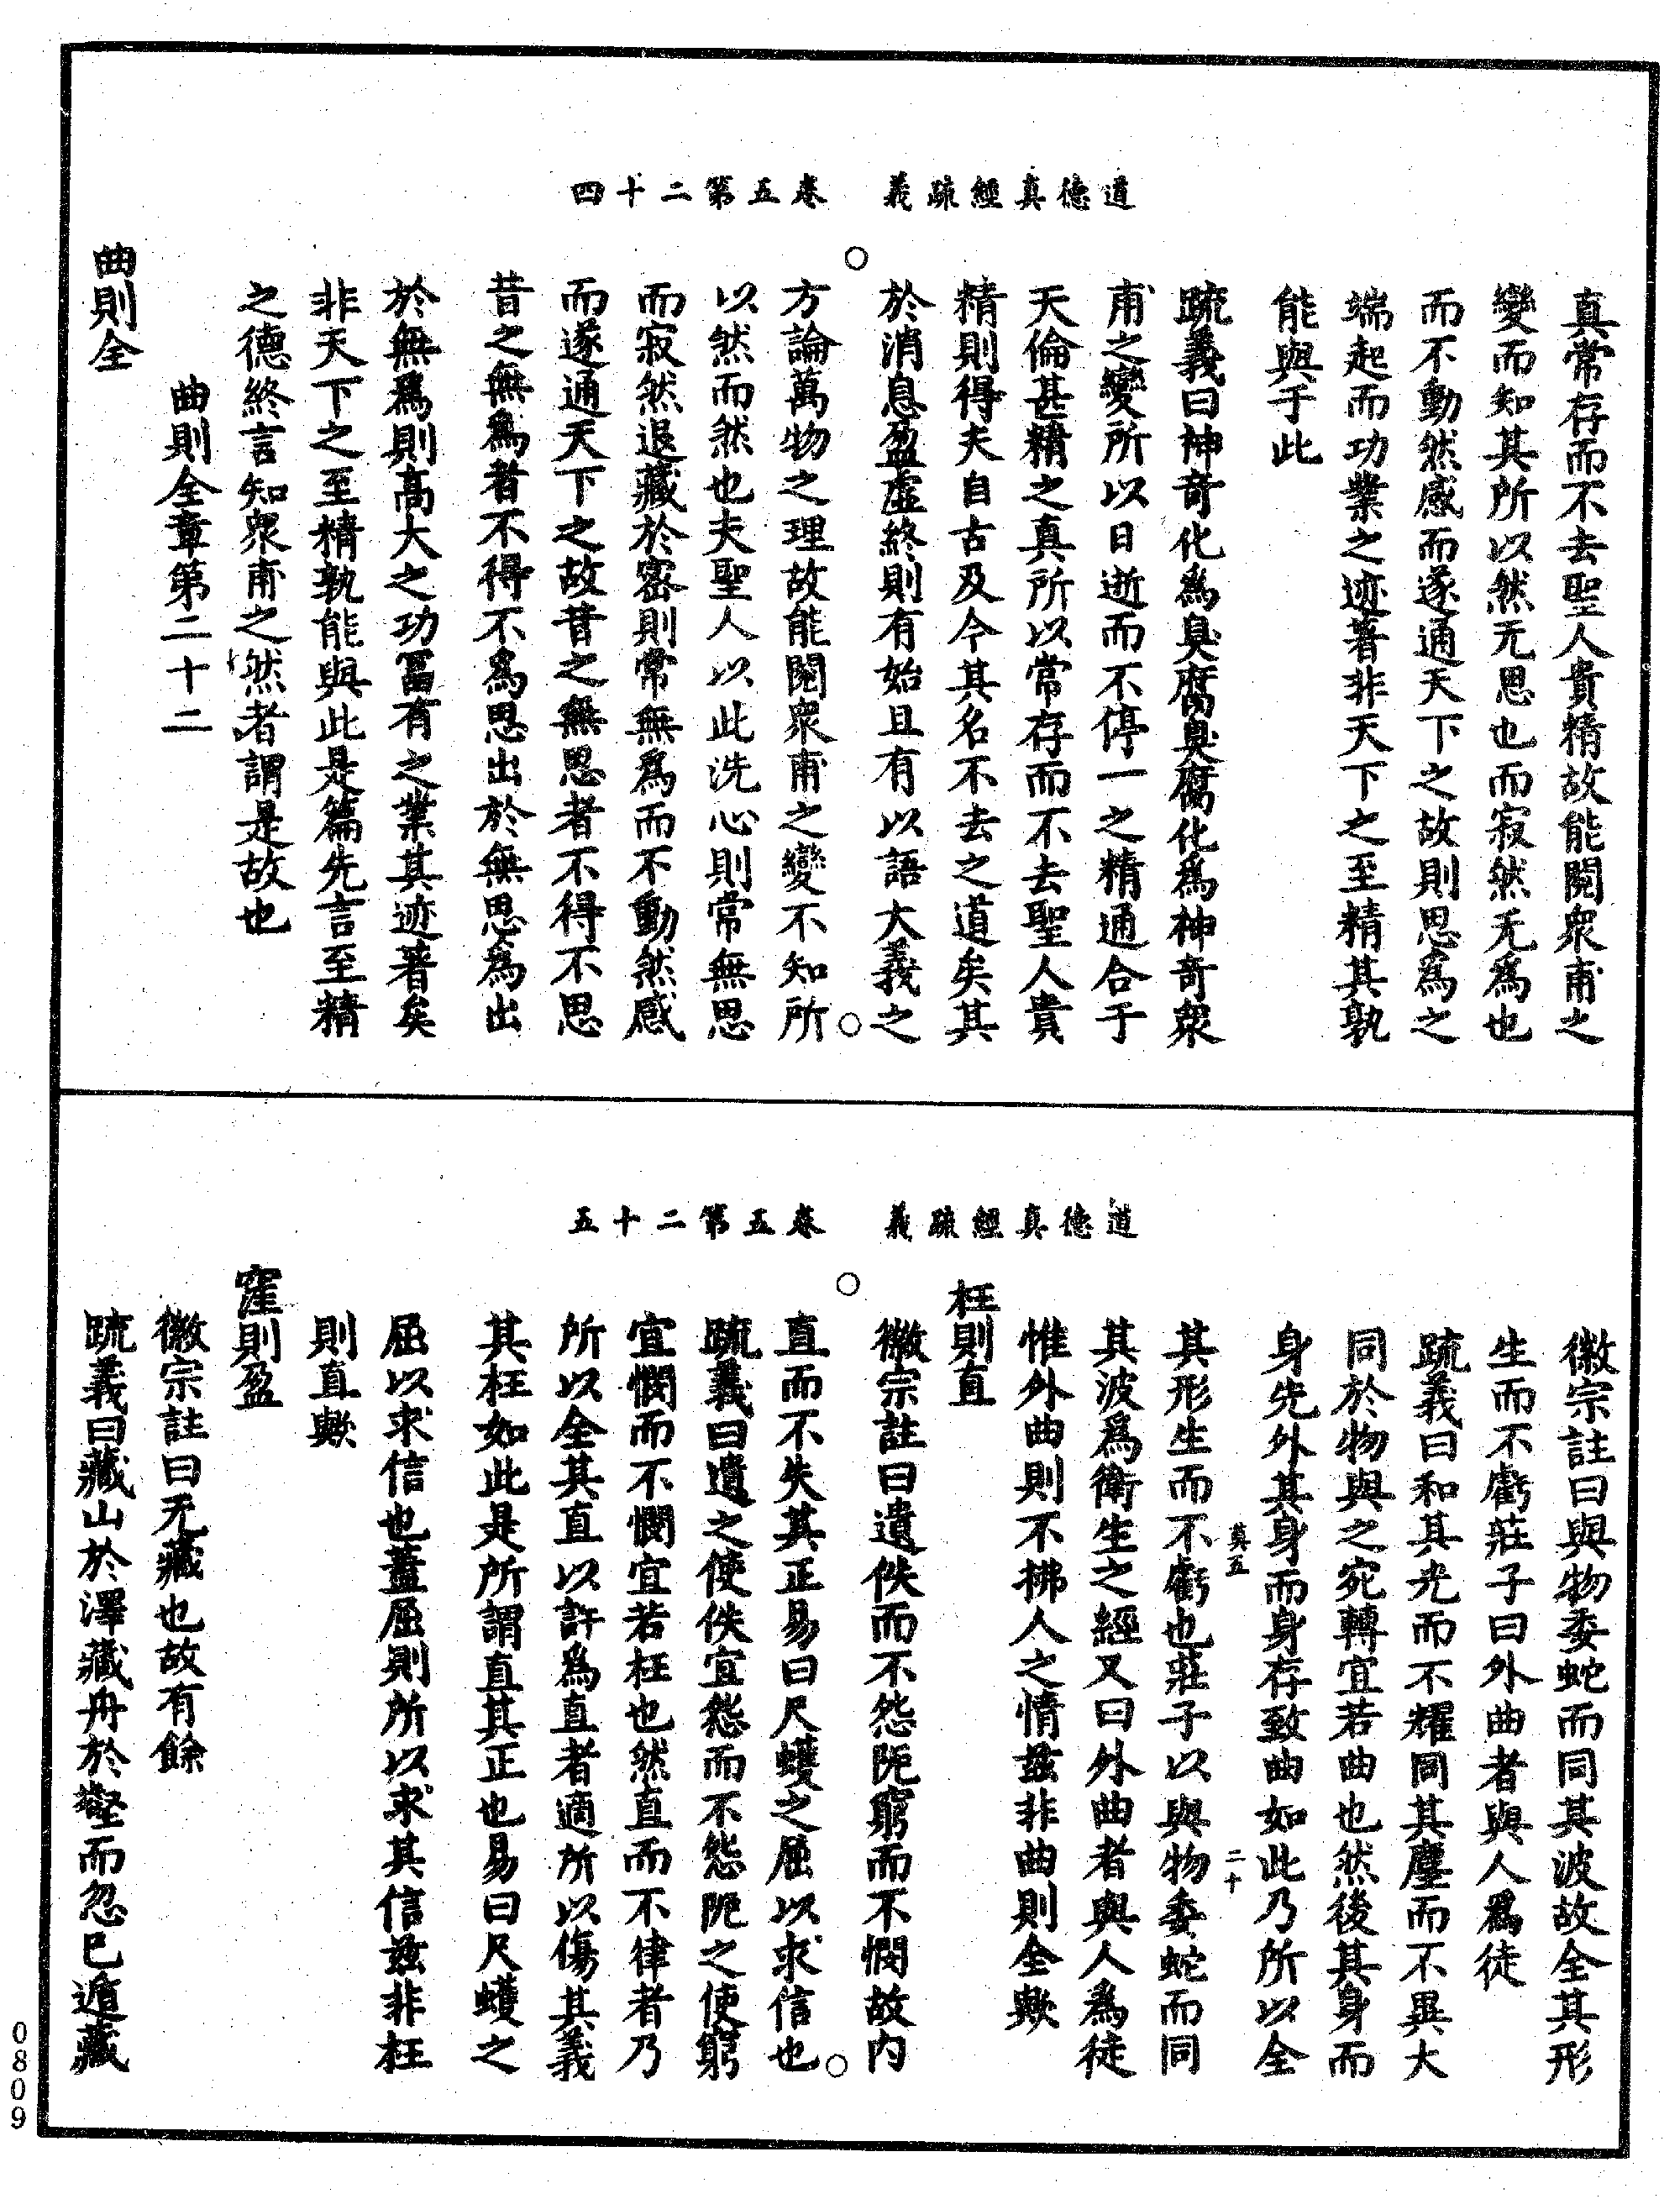 道德真經疏義　卷五第二十四
真常存而不去聖人貴精故能閱衆甫之
變而知其所以然无思也而寂然无為也
而不動然感而遂通天下之故則思為之
端起而功業之迹著非天下之至精其孰
能與于此
疏義曰神奇化為臭腐臭腐化為神奇衆
甫之變所以日逝而不停一之精通合于
天倫甚精之真所以常存而不去聖人貴
精則得夫自古及今其名不去之道矣其
於消息盈虛終則有始且有以語大義之
方論萬物之理故能閱衆甫之變不知所
以然而然也夫聖人以此洗心則常無思
而寂然退藏於密則常無為而不動然感
而遂通天下之故昔之無思者不得不思
昔之無為者不得不為思出於無思為出
於無為則高大之功冨有之業其迹著矣
非天下之至精孰能與此是篇先言至精
之德終言知衆甫之然者謂是故也
曲則全章第二十二
曲則全
道德真經疏義　卷五第二十五
徽宗註曰與物委蛇而同其波故全其形
生而不虧莊子曰外曲者與人為徒
疏義曰和其光而不耀同其塵而不異大
同於物與之宛轉宜若曲也然後其身而
身先外其身而身存致曲如此乃所以全
莫五　二十
其形生而不虧也莊子以與物委蛇而同
其波為衛生之經又曰外曲者與人為徒
惟外曲則不拂人之情茲非曲則全歟
枉則直
徽宗註曰遺佚而不怨阨窮而不憫故內
直而不失其正易曰尺蠖之屈以求信也
疏義曰遺之使佚宜怨而不怨阨之使窮
宜憫而不憫宜若枉也然直而不律者乃
所以全其直以訐為直者適所以傷其義
其枉如此是所謂直其正也易曰尺蠖之
屈以求信也蓋屈則所以求其信茲非枉
則直歟
窪則盈
徽宗註曰无藏也故有餘
疏義曰藏山於澤藏舟於壑而忽已遁藏
0809